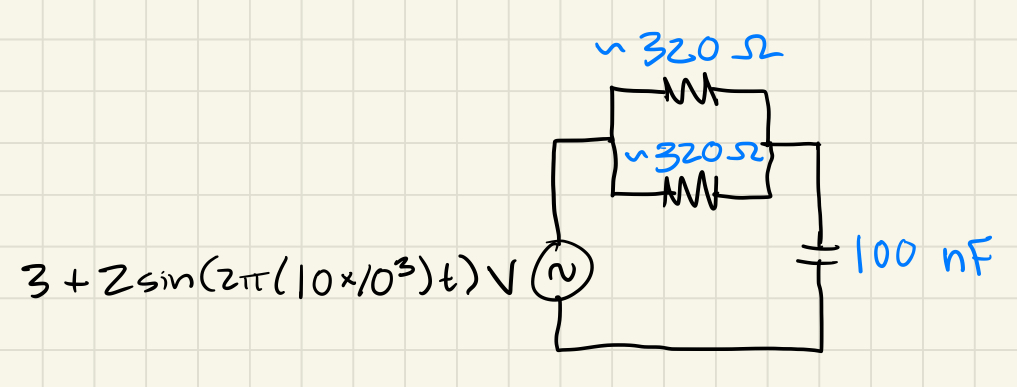 ~320 Ω
~320 Ω
3 + 2sin(2π(10×10³)t) V
100 nF